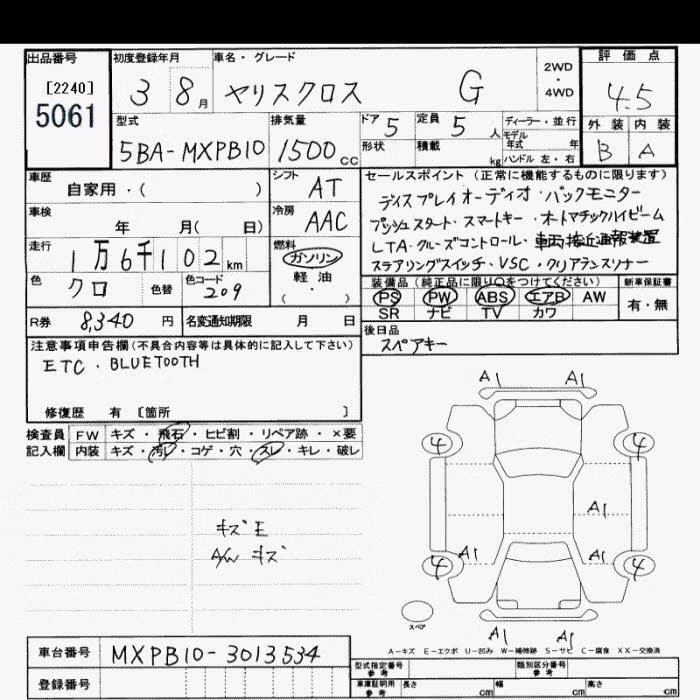 出品番号
[2240]
5061
初度登録年月 車名・グレード
3 8月 ヤリスクロス G
2WD・4WD
評価点
4.5
外装 内装
B A
型式 排気量 ドア 定員 ディーラー・並行
5BA-MXPB10 1500cc 5 5人
モデル年式 年
形状 積載 kg ハンドル 左・右
車歴 自家用・( )
シフト AT
車検 年 月( 日)
冷房 AAC
走行 1万6千102km
燃料 ガソリン
軽油
( ・ )
色 クロ 色替 色コード 209
R券 8,340円 名変通知期限 月 日
セールスポイント(正常に機能するものに限ります)
ディスプレイオーディオ・バックモニター
プッシュスタート・スマートキー・オートマチックハイビーム
LTA・クルーズコントロール・車両接近通報装置
ステアリングスイッチ・VSC・クリアランスソナー
装備品(純正品に限り○をつけてください) 新車保証書
PS PW ABS エアB AW 有・無
SR ナビ TV カワ
後日品
スペアキー
注意事項申告欄(不具合内容等は具体的に記入して下さい)
ETC・BLUETOOTH
修復歴 有 [箇所 ]
検査員記入欄
FW キズ・飛石・ヒビ割・リペア跡・×要
内装 キズ・汚レ・コゲ・穴・スレ・キレ・破レ
キズE
A/W キズ
A1 A1
4 4
A1
A1 A1
4 4
スペア
A1 A1
A-キズ E-エクボ U-凹み W-補修跡 S-サビ C-腐食 XX-交換済
車台番号 MXPB10-3013534
登録番号
型式指定番号 参考 類別区分番号 参考
車庫証明用 参考 長さ cm 幅 cm 高さ cm